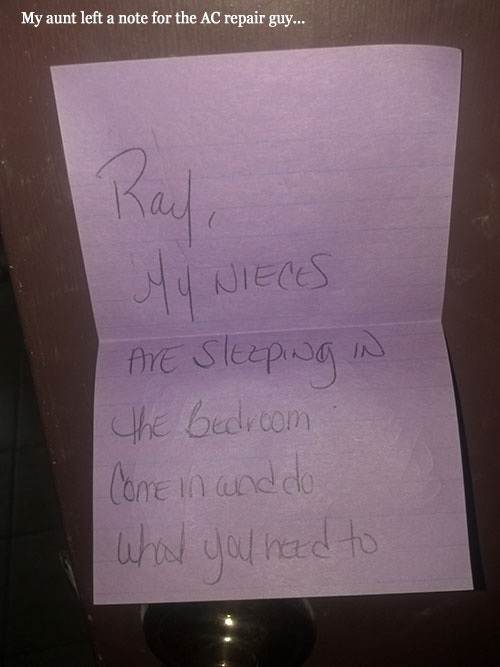 My aunt left a note for the AC repair guy...
Ray,
My NIECES
ARE SLEEPING IN
the Bedroom
Come in and do
what you need to